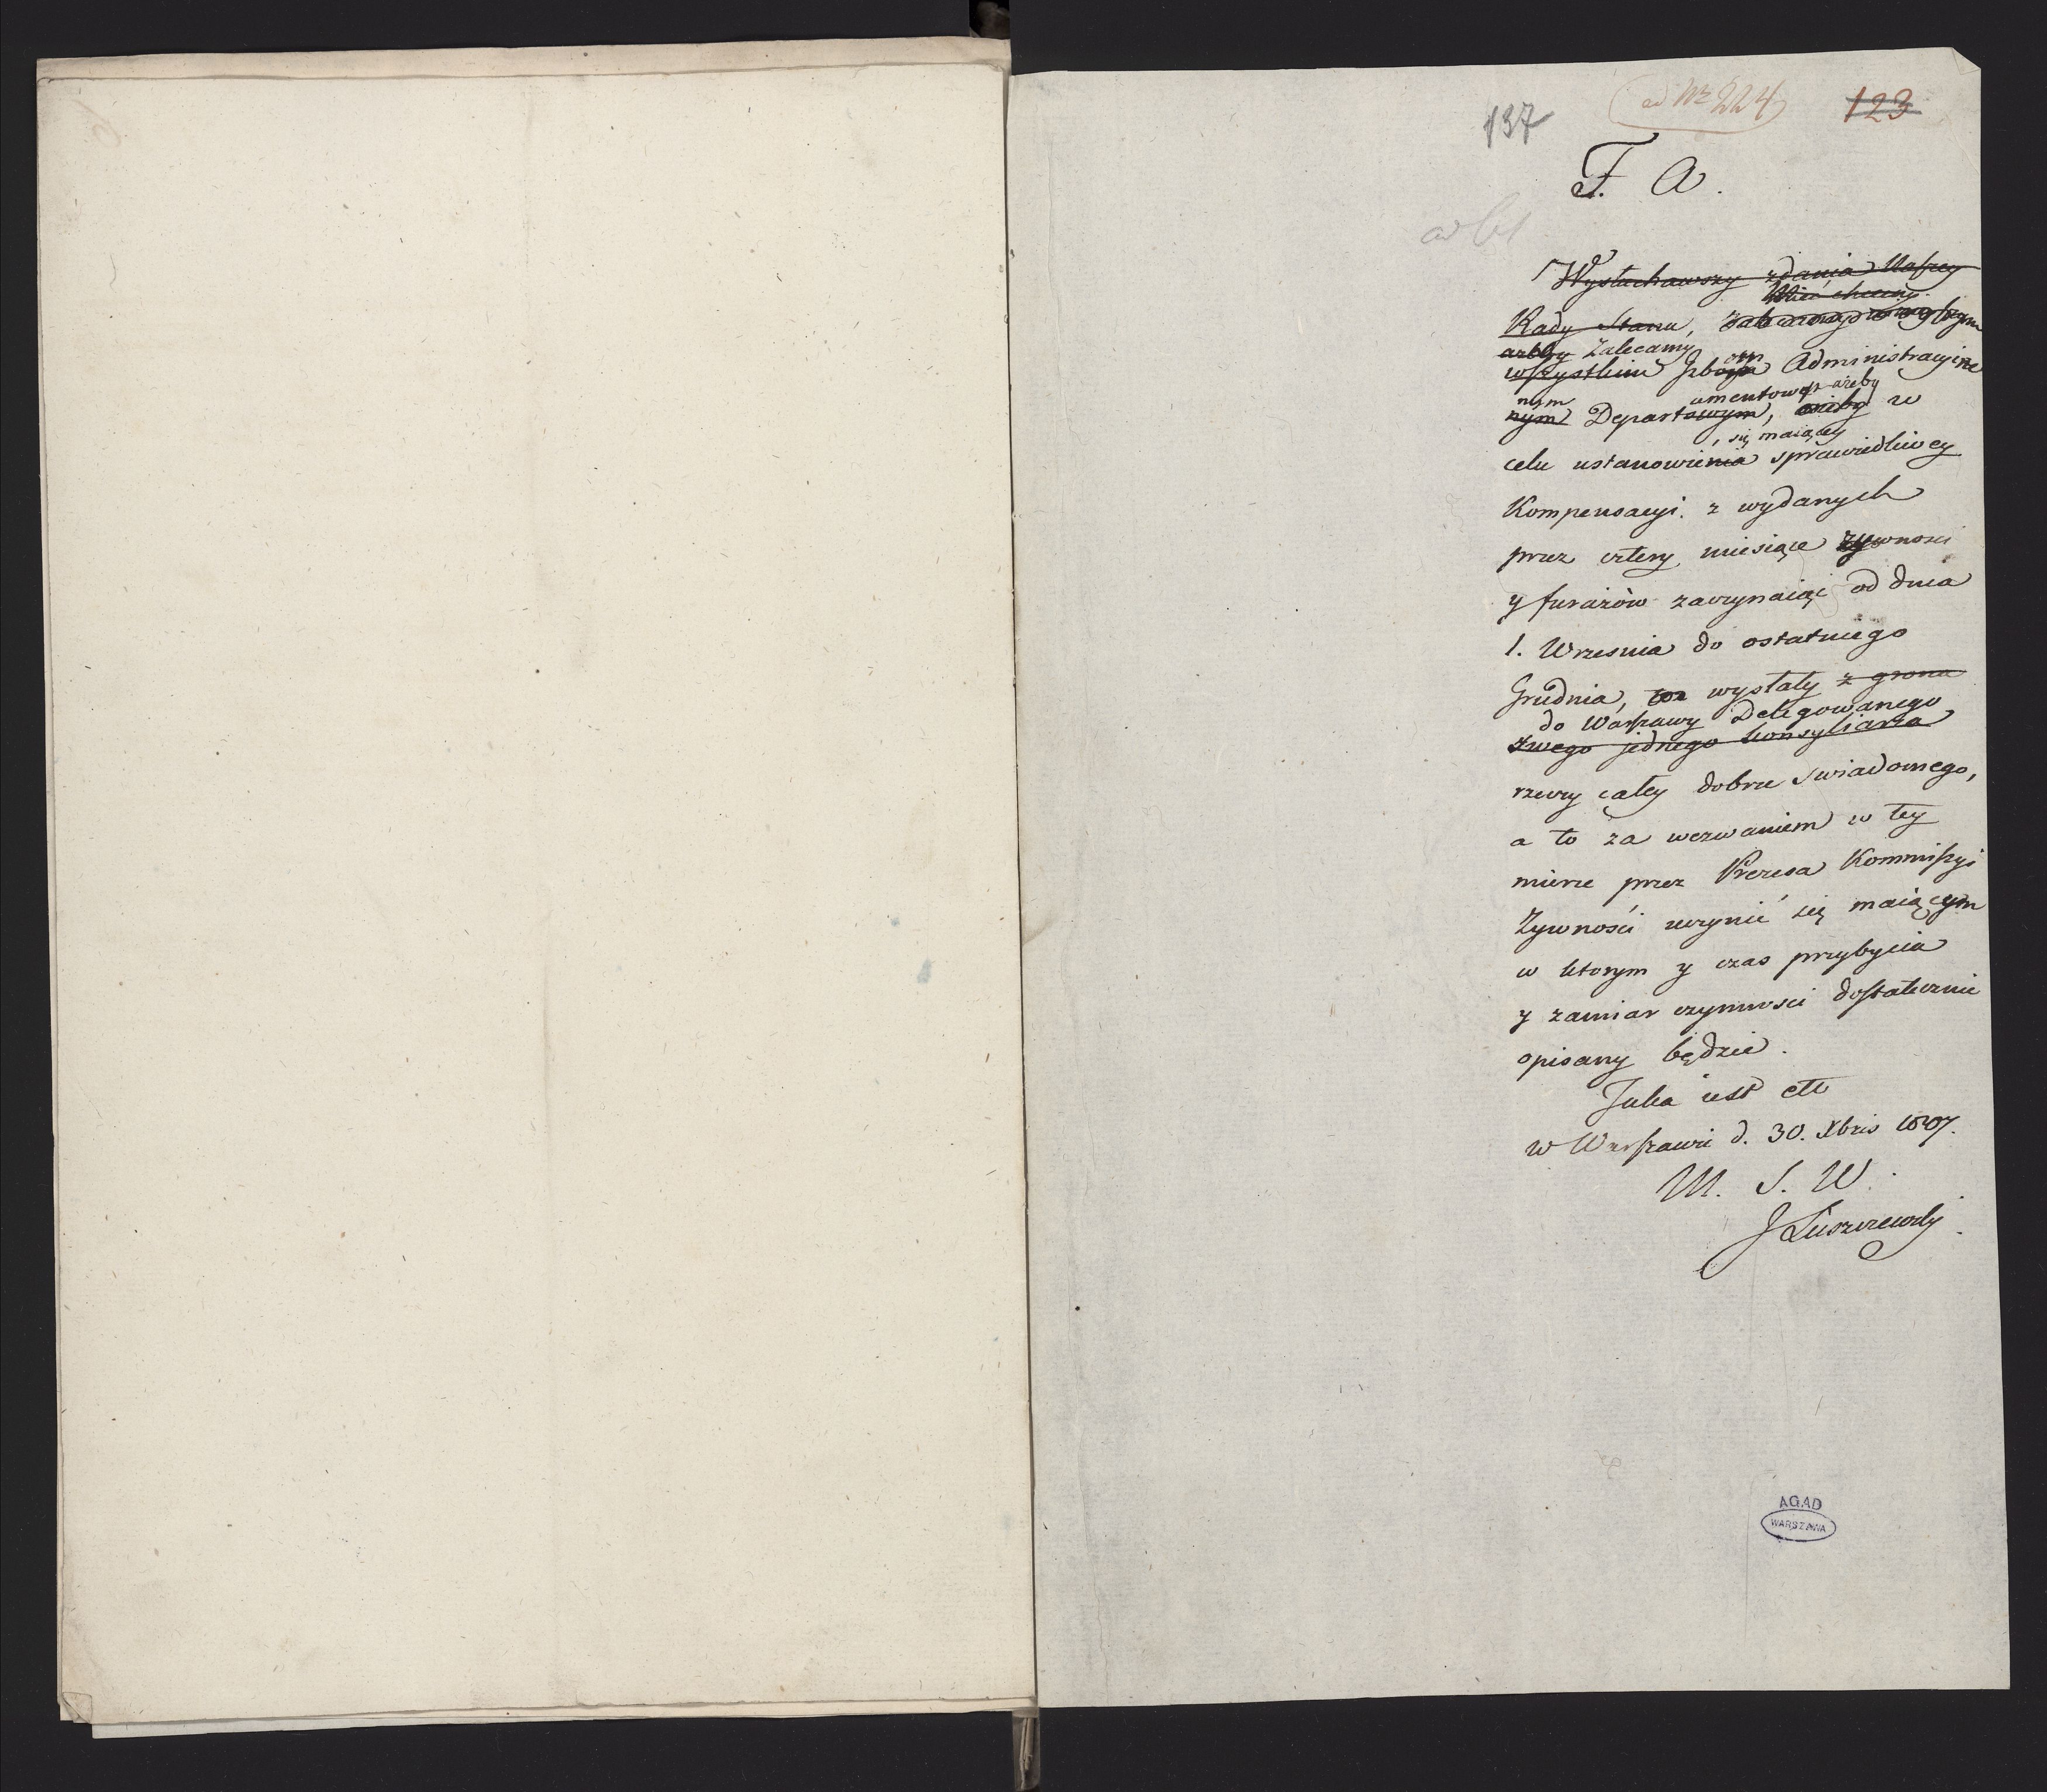 137
ad Nr 224
123
F. A.
Wysłuchawszy zdania Naszey
Mieć chcemy.
Rady Stanu,
ażeby Zalecamy
wszystkim Izbom Administracyine
nym umentowym ażeby
nym Departowym, ażeby w
się maiącey
celu ustanowienia sprawiedliwey
Kompensacyi. z wydanych
przez cztery miesiące żywnosci
y furażów zaczynaiąc od dnia
1. Wrzesnia do ostatniego
Grudnia, wysłały z grona
do Warszawy Delegowanego
swego jednego konsyliarza
rzeczy całey dobrze swiadomego,
a to za wezwaniem w tey
mierze przez Prezesa Kommiszyi
Zywności uczynić się maiącym
w ktorym y czas przybycia
y zamiar czynnosci dostatecznie
opisany będzie.
Taka iest etc
w Warszawie d. 30. Xbris 1807.
M. S. W.
J Łuszczewski.
AGAD
WARSZAWA